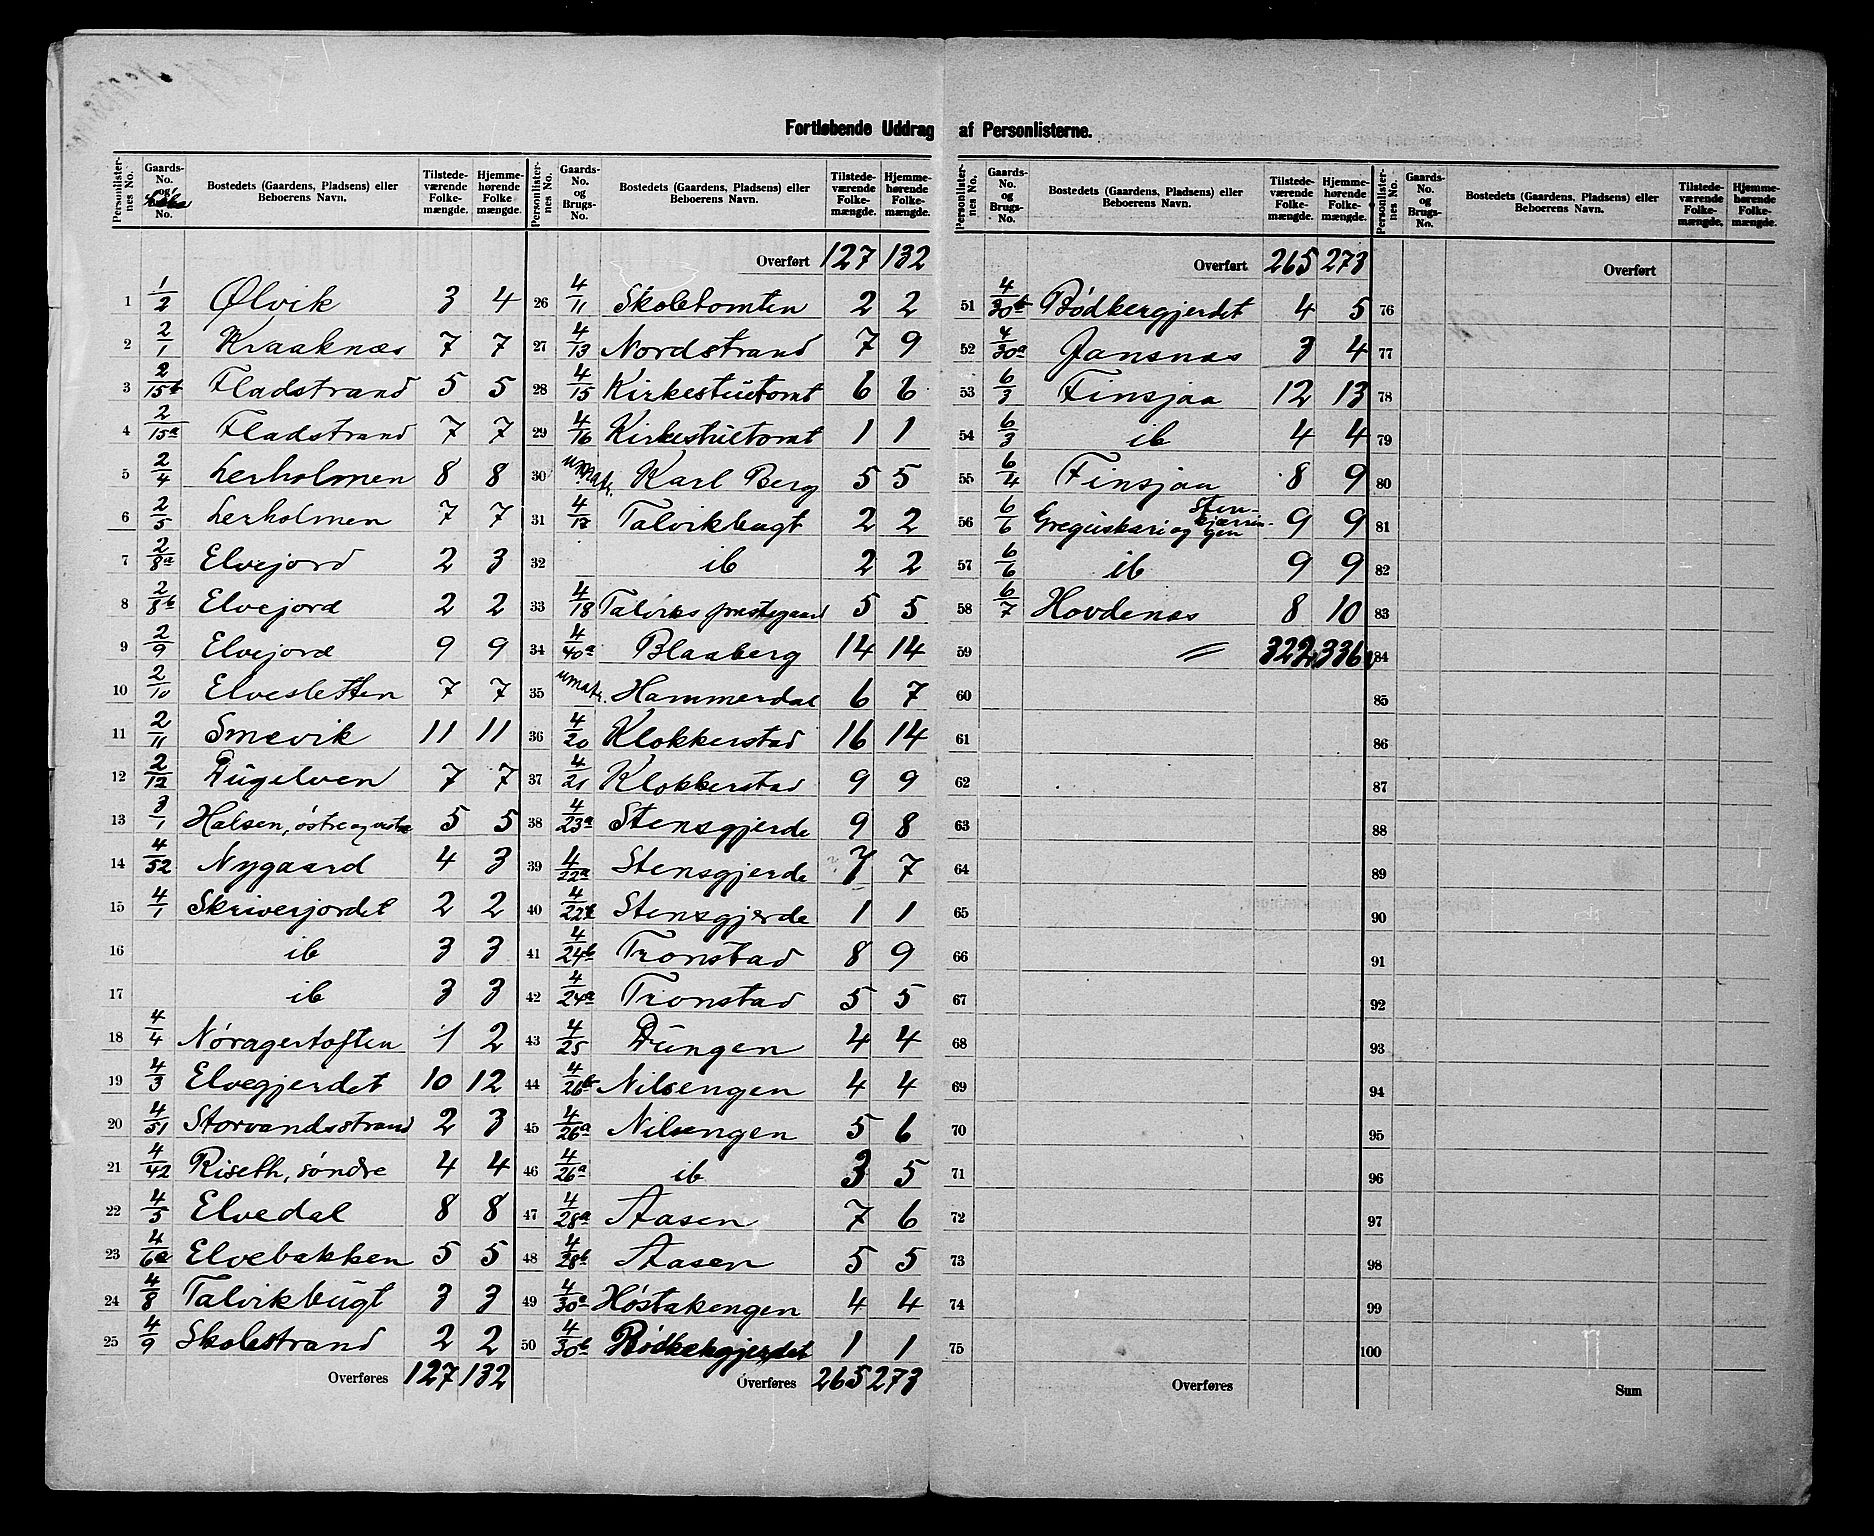 Fortløbende Uddrag af Personlisterne.
Personlister-nes No. Gaards-No. og No. Bostedets (Gaardens, Pladsens) eller Beboerens Navn. Tilstede-værende Folke-mængde. Hjemme-hørende Folke-mængde.
1 1/2 Ølvik 3 4
2 2/1 Kraaknæs 7 7
3 2/15b Fladstrand 5 5
4 2/15a Fladstrand 7 7
5 2/4 Lerholmen 8 8
6 2/5 Lerholmen 7 7
7 2/8a Elvejord 2 3
8 2/8b Elvejord 2 2
9 2/9 Elvejord 9 9
10 2/10 Elvesletten 7 7
11 2/11 Smevik 11 11
12 2/12 Dugelven 7 7
13 3/1 Halsen, østre og vestre 5 5
14 4/52 Nygaard 4 3
15 4/1 Skriverjordet 2 2
16 ib 3 3
17 ib 3 3
18 4/4 Nøragertoften 1 2
19 4/3 Elvegjerdet 10 12
20 4/51 Storvandsstrand 2 3
21 4/42 Riseth, søndre 4 4
22 4/5 Elvedal 8 8
23 4/6a Elvebakken 5 5
24 4/8 Talvikbugt 3 3
25 4/9 Skolestrand 2 2
Overføres 127 132
Personlister-nes No. Gaards-No. og Brugs-No. Bostedets (Gaardens, Pladsens) eller Beboerens Navn. Tilstede-værende Folke-mængde. Hjemme-hørende Folke-mængde.
Overført 127 132
26 4/11 Skoletomten 2 2
27 4/13 Nordstrand 7 9
28 4/15 Kirkestuetomt 6 6
29 4/16 Kirkestuetomt 1 1
30 umatr. Karl Berg 5 5
31 4/17 Talvikbugt 2 2
32 ib 2 2
33 4/18 Talviks prestegaard 5 5
34 4/40a Blaaberg 14 14
35 umatr. Hammerdal 6 7
36 4/20 Klokkerstad 16 14
37 4/21 Klokkerstad 9 9
38 4/23a Stensgjerde 9 8
39 4/22a Stensgjerde 7 7
40 4/22b Stensgjerde 1 1
41 4/24b Tronstad 8 9
42 4/24a Tronstad 5 5
43 4/25 Dungen 4 4
44 4/26b Nilsengen 4 4
45 4/26a Nilsengen 5 6
46 4/26a ib 3 5
47 4/28a Aasen 7 6
48 4/28b Aasen 5 5
49 4/30a Høstakengen 4 4
50 4/30b Bødkergjerdet 1 1
Overføres 265 273
Personlister-nes No. Gaards-No. og Brugs-No. Bostedets (Gaardens, Pladsens) eller Beboerens Navn. Tilstede-værende Folke-mængde. Hjemme-hørende Folke-mængde.
Overført 265 273
51 4/30b Bødkergjerdet 4 5
52 4/30a Jansnæs 3 4
53 6/3 Finsjaa 12 13
54 6/3 ib 4 4
55 6/4 Finsjaa 8 9
56 6/6 Greguskari og Stenkjærringen 9 9
57 6/6 ib 9 9
58 6/7 Hovdenæs 8 10
59 〃 322 336
60
61
62
63
64
65
66
67
68
69
70
71
72
73
74
75
Overføres
Personlister-nes No. Gaards-No. og Brugs-No. Bostedets (Gaardens, Pladsens) eller Beboerens Navn. Tilstede-værende Folke-mængde. Hjemme-hørende Folke-mængde.
Overført
76
77
78
79
80
81
82
83
84
85
86
87
88
89
90
91
92
93
94
95
96
97
98
99
100
Sum